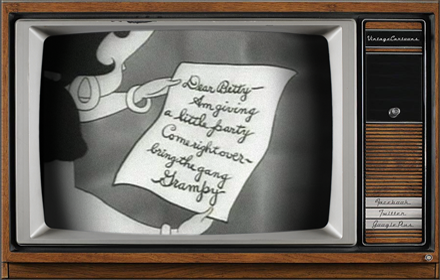 Dear Betty-
Am giving
a little party
Come right over-
bring the gang
Grampy-
VintageCartoons
Facebook
Twitter
GooglePlus